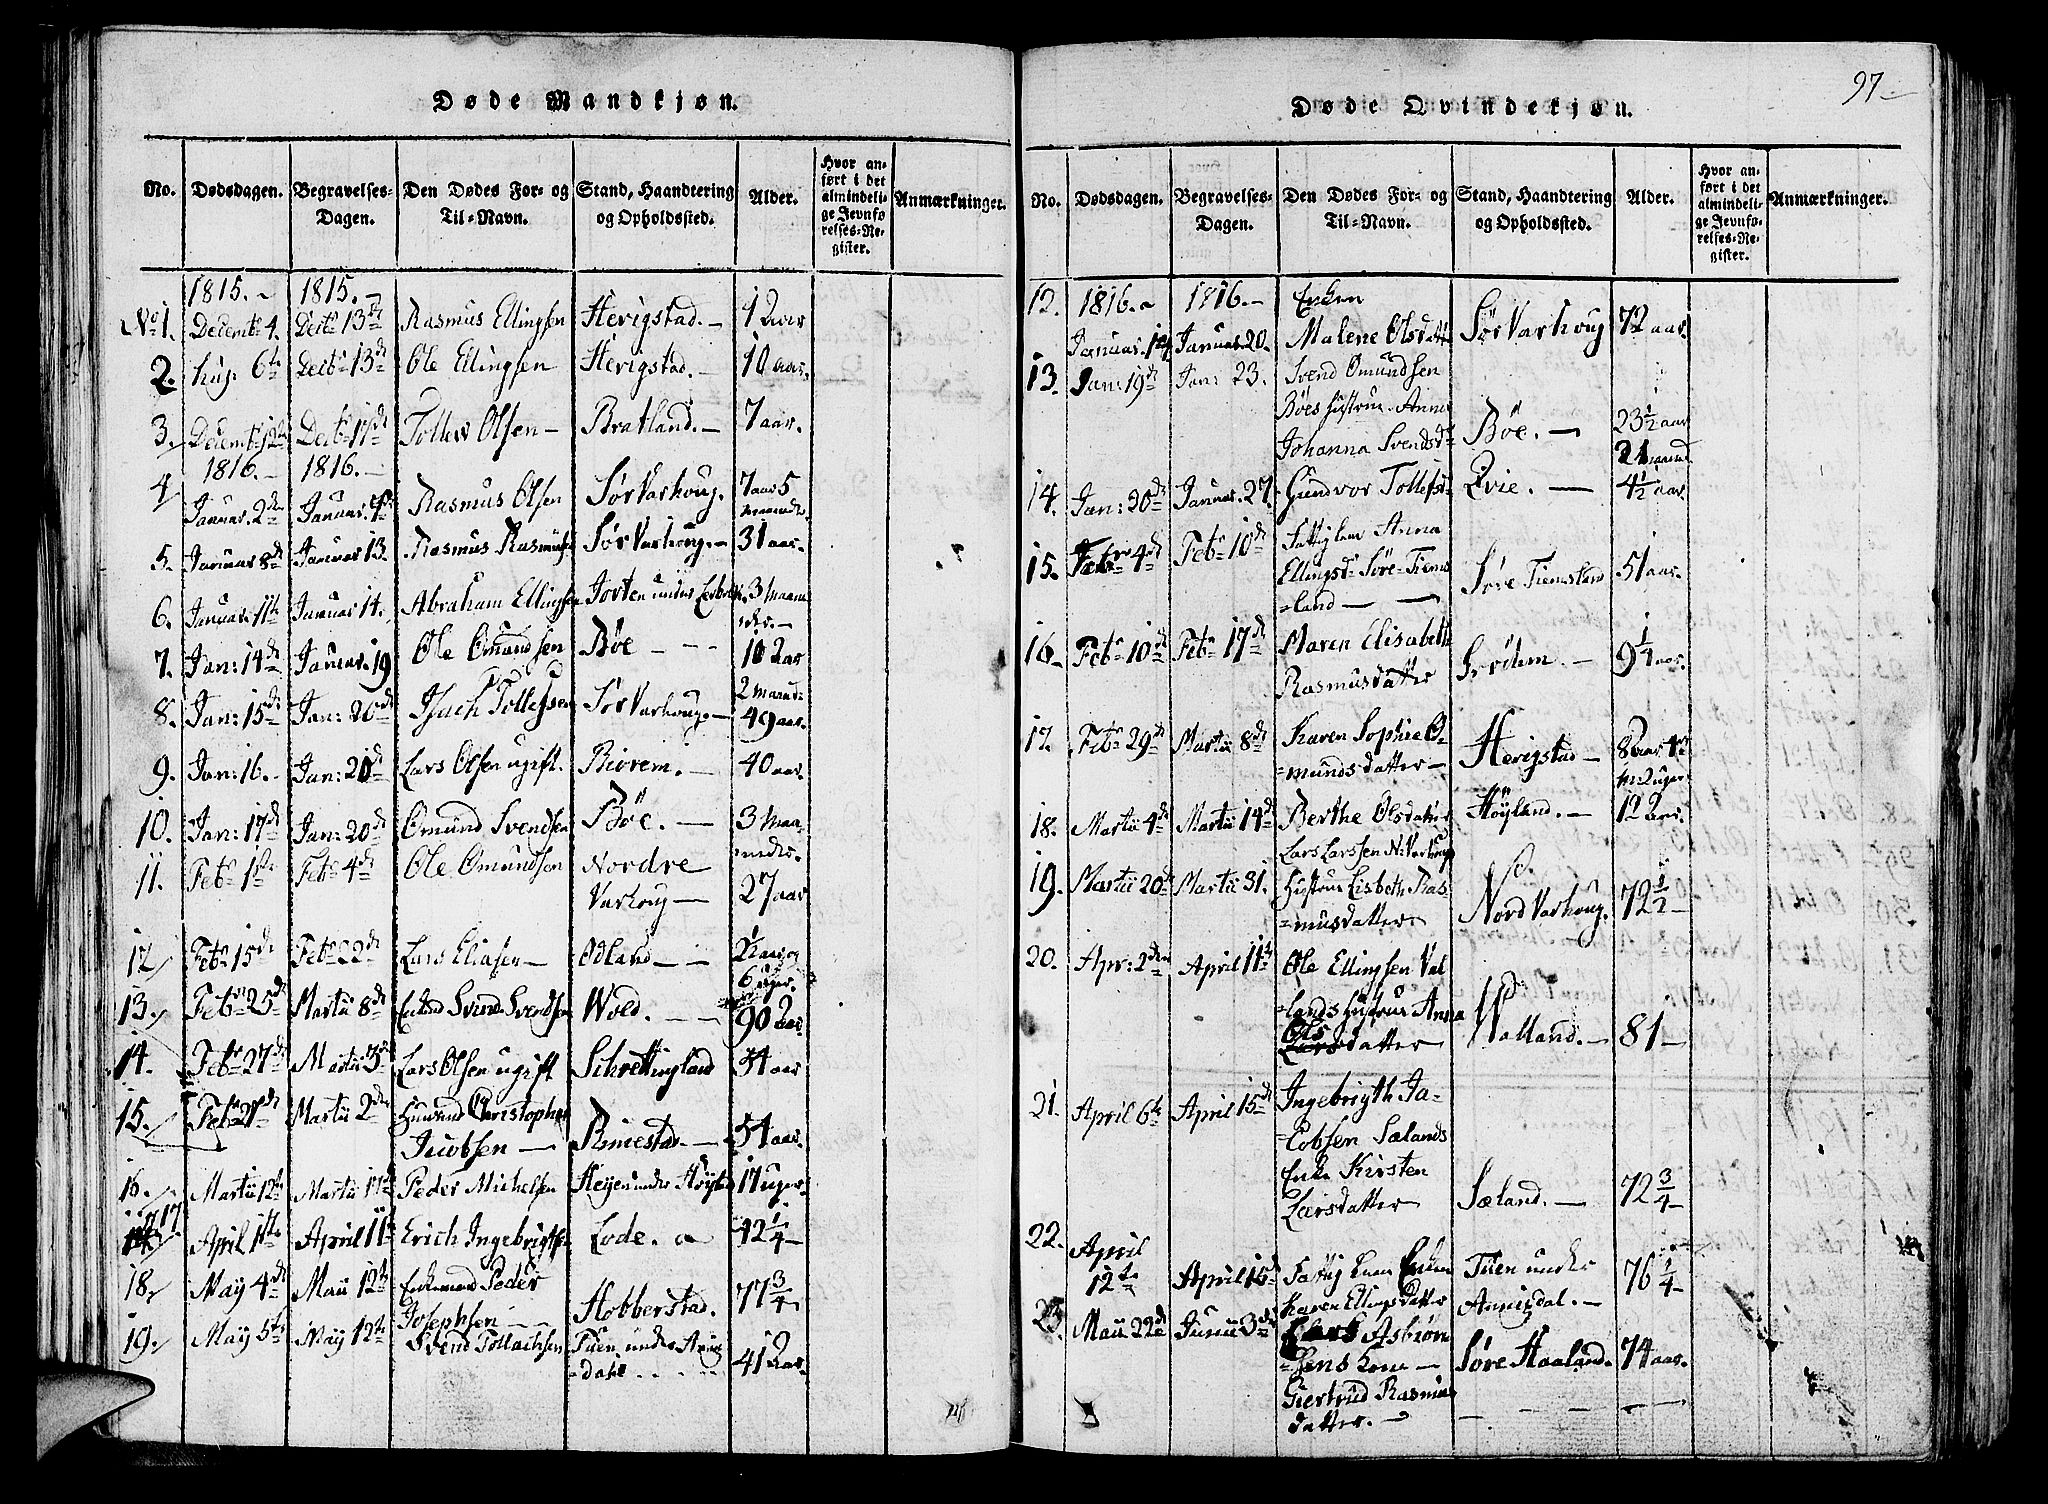 97
Døde Mandkjøn.
No. Dødsdagen. Begravelses-Dagen. Den Dødes For- og Til-Navn. Stand, Haandtering og Opholdssted. Alder. Hvor anført i det almindelige Jevnførelses-Register. Anmærkninger.
1815. 1815.
No 1. Decemb. 4. Decb. 13de Rasmus Ellingsen Herigstad. 1 Aar
2. 6te Decb. 13de Ole Ellingsen Herigstad. 10 aar.
3. Decemb. 12te Decb. 17de Tollev Olsen Bratland. 7 aar.
1816. 1816.
4 Januar. 2den Januar. Rasmus Olsen Sør Varhoug. 7 aar 5 maaneder.
5. Januar 8de Januar 13. Rasmus Rasmuss. Sør Varhoug. 31 aar.
6. Januar. 11te Januar 14. Abraham Ellingsen under 3 maaneder.
7. Jan: 14de Januar. 19 Ole Omundsen Bøe 10 Aar
8. Jan: 15de Jan: 20de Isach Tollefsen Sør Varhoug. 2 maand: 49 aar.
9. Jan: 16. Jan: 20de Lars Olsen ugift. Biorem. 40 aar.
10. Jan: 17de Jan: 20de Omund Svendsen Bøe. 3 Maaneder.
11. Feb. 1ste Feb. 4de Ole Omundsen Nordre Varhoug 27 aar
12 Feb. 15de Feb. 22de Lars Eliasen Ødland 6 uger.
13. Feb. 25de Martii 8de Svend Svendsen Wold. 90 Aar
14. Feb. 27de Martii 3de Lars Olsen ugift Schrettingland 34 aar
15. Feb. 27de Martii 2den Christopher Jacobsen Rimestad. 54 aar.
16. Martii 12te Martii 17de Peder Michelsen under 17 uger.
17 April 1ste April 11te Erich Ingebrigts. Lode. 42 1/4
18. May 4de Maii 12te Enkemand Peder Josephsen Hobberstad. 77 3/4
19. May 5te May 12te Svend Tollachsen Tuen under 41 Aar.
Døde Qvindekjøn.
No. Dødsdagen. Begravelses-Dagen. Den Dødes For- og Til-Navn. Stand, Haandtering og Opholdssted. Alder. Hvor anført i det almindelige Jevnførelses-Register. Anmærkninger.
12. 1816. 1816. Enken
Januar. Januar. 20. Malene Olsdatt. Sør Varhoug 72 aar.
13. Jan: 19de Jan: 23. Svend Omundsen
Bøes Hustrue Anne
Johanna Svendsd. Bøe. 23 1/2 aar
21 maand.
14. Jan: 20de Januar. 27. Gundvor Tollefsd. Qvie. 4 1/2 aar.
15. Feb. 4de Feb. 10de Fattiglem Anna
Ellingsd. Søre Tiems
=land Søre Tiemsland 51 aar.
16. Feb. 10de Feb. 17de Maren Elisabeth
Rasmusdatter Grødem. 9 1/4 aar.
17. Feb. 29de Martii 8de Karen Sophie O-
=mundsdatter Herigstad
18. Martii 4de Martii 14de Berthe Olsdatter Høyland. 12 Aar.
19. Martii 20de Martii 31. Lars Larssen N. Varhoug
Hustrue Lisbeth Ras-
=musdatter Nord Varhoug. 72 1/2
20. Apr: 2den April 11te Ole Ellingsen Val
=lands Hustrue Anna
Olsdatter Walland. 81
21. April 6te April 15de Ingebrigth Ja-
=cobsen Sælands
Enke Kirsten
Larsdatter Sæland. 72 3/4
22. April 12te April 15de Fattig Lem Enken
Karen Ellingsdatter Tuen under 76 1/4
23. Maii 22de Junii 3de Asbiørn
=sens Kone
Giertrud Rasmus
datter. Søre Haaland. 74 aar.